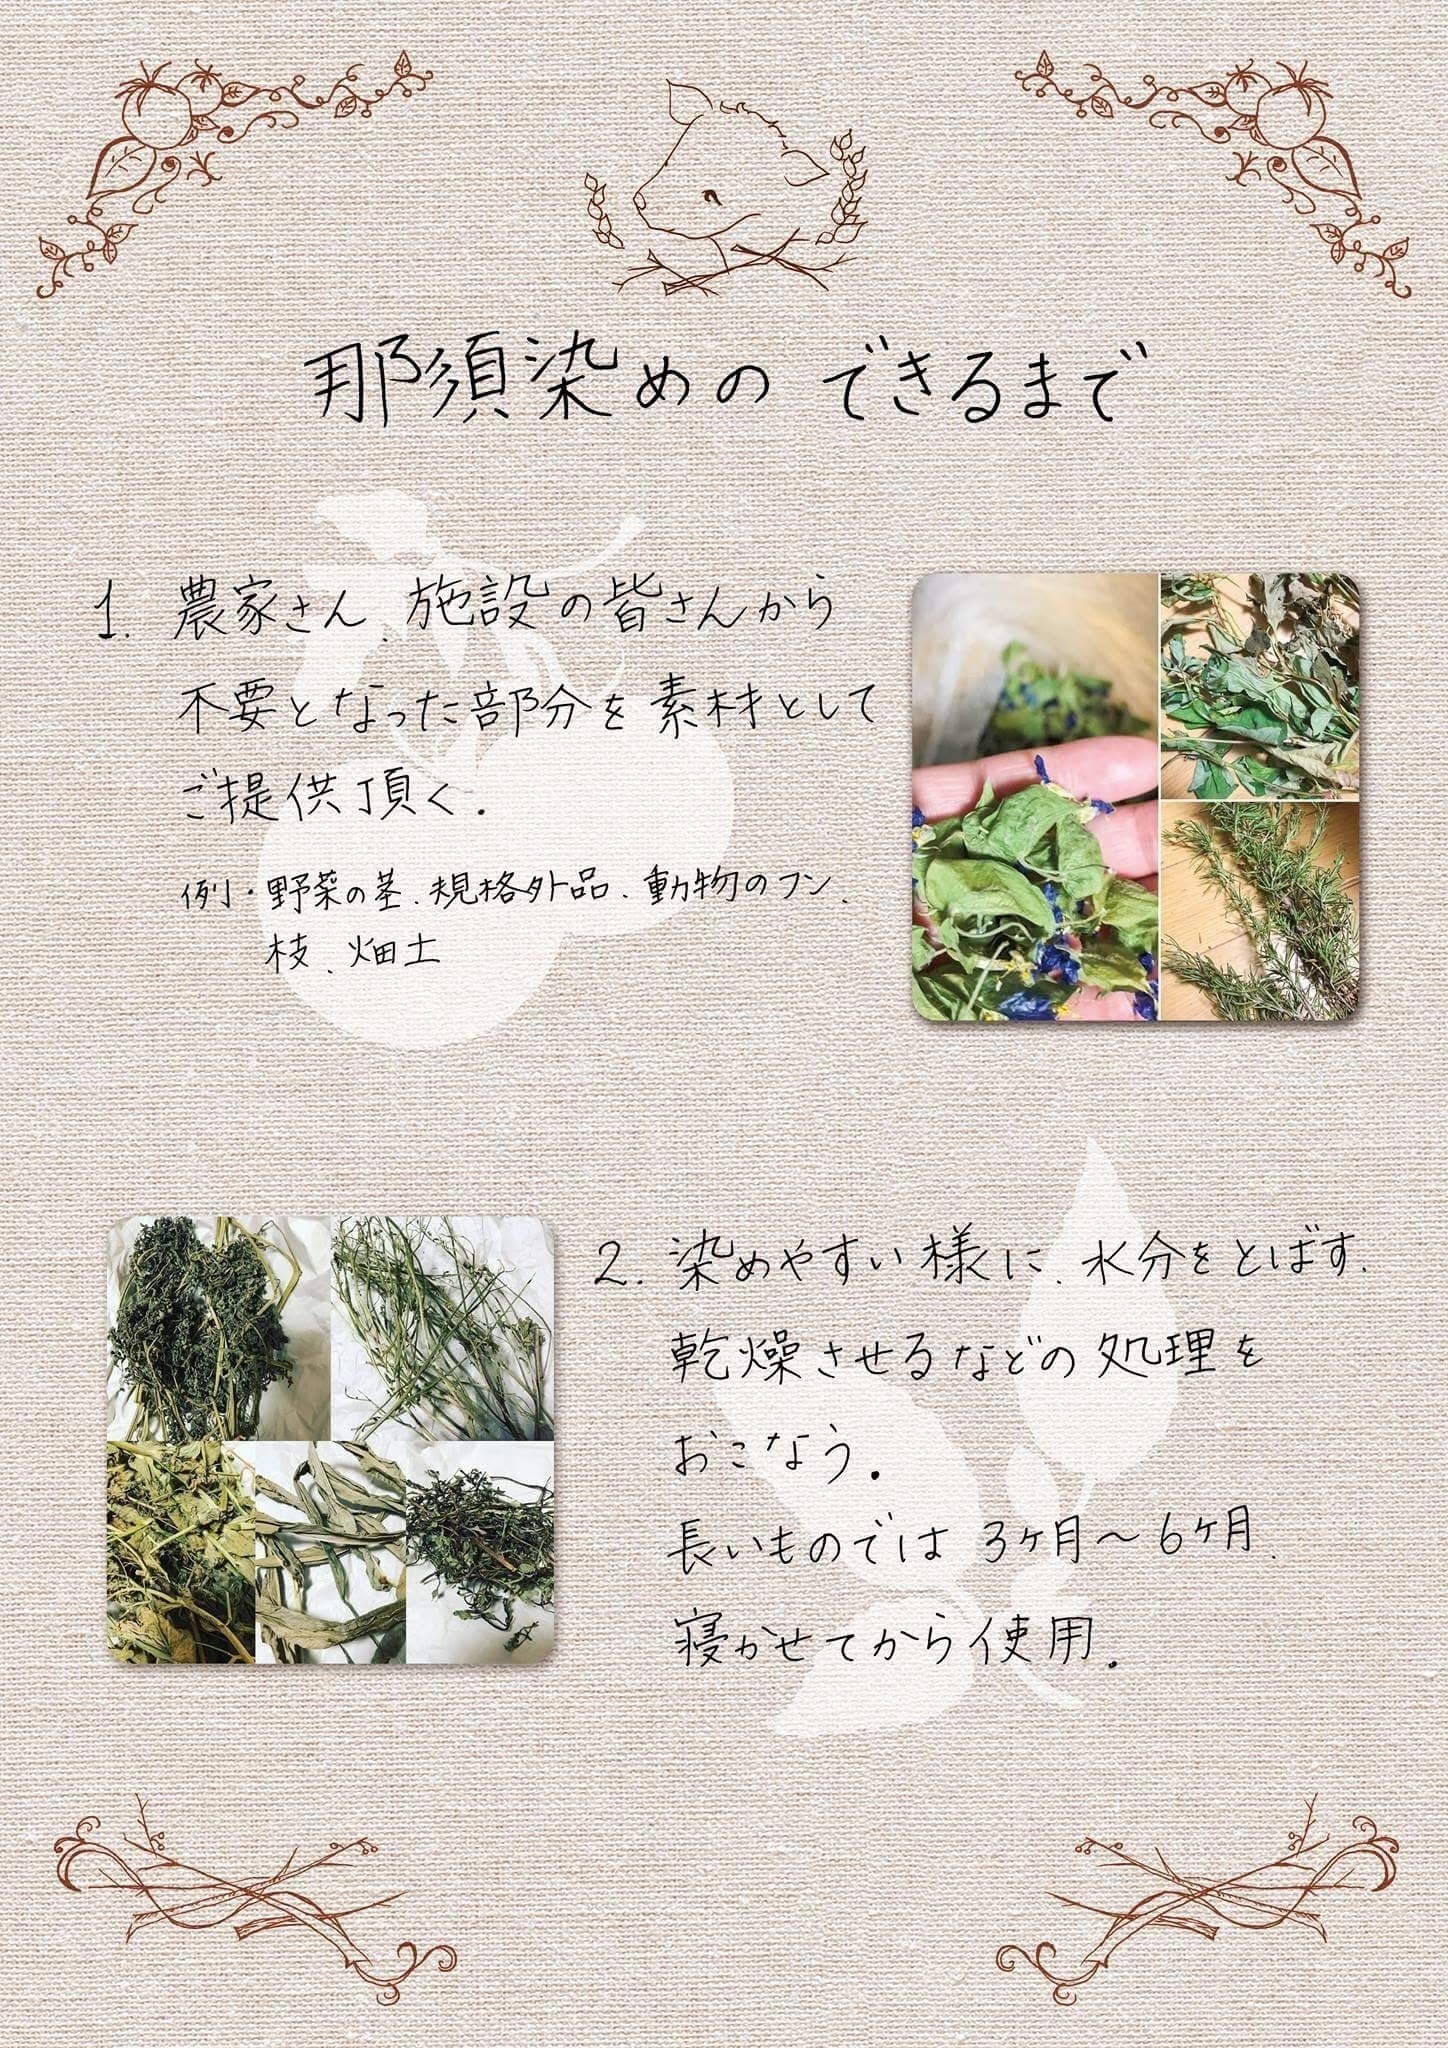 那須染めの できるまで
1. 農家さん、施設の皆さんから
不要となった部分を素材として
ご提供頂く。
例・野菜の茎、規格外品、動物のフン、
枝、畑土
2. 染めやすい様に、水分をとばす、
乾燥させるなどの処理を
おこなう。
長いものでは 3ヶ月〜6ヶ月、
寝かせてから使用。